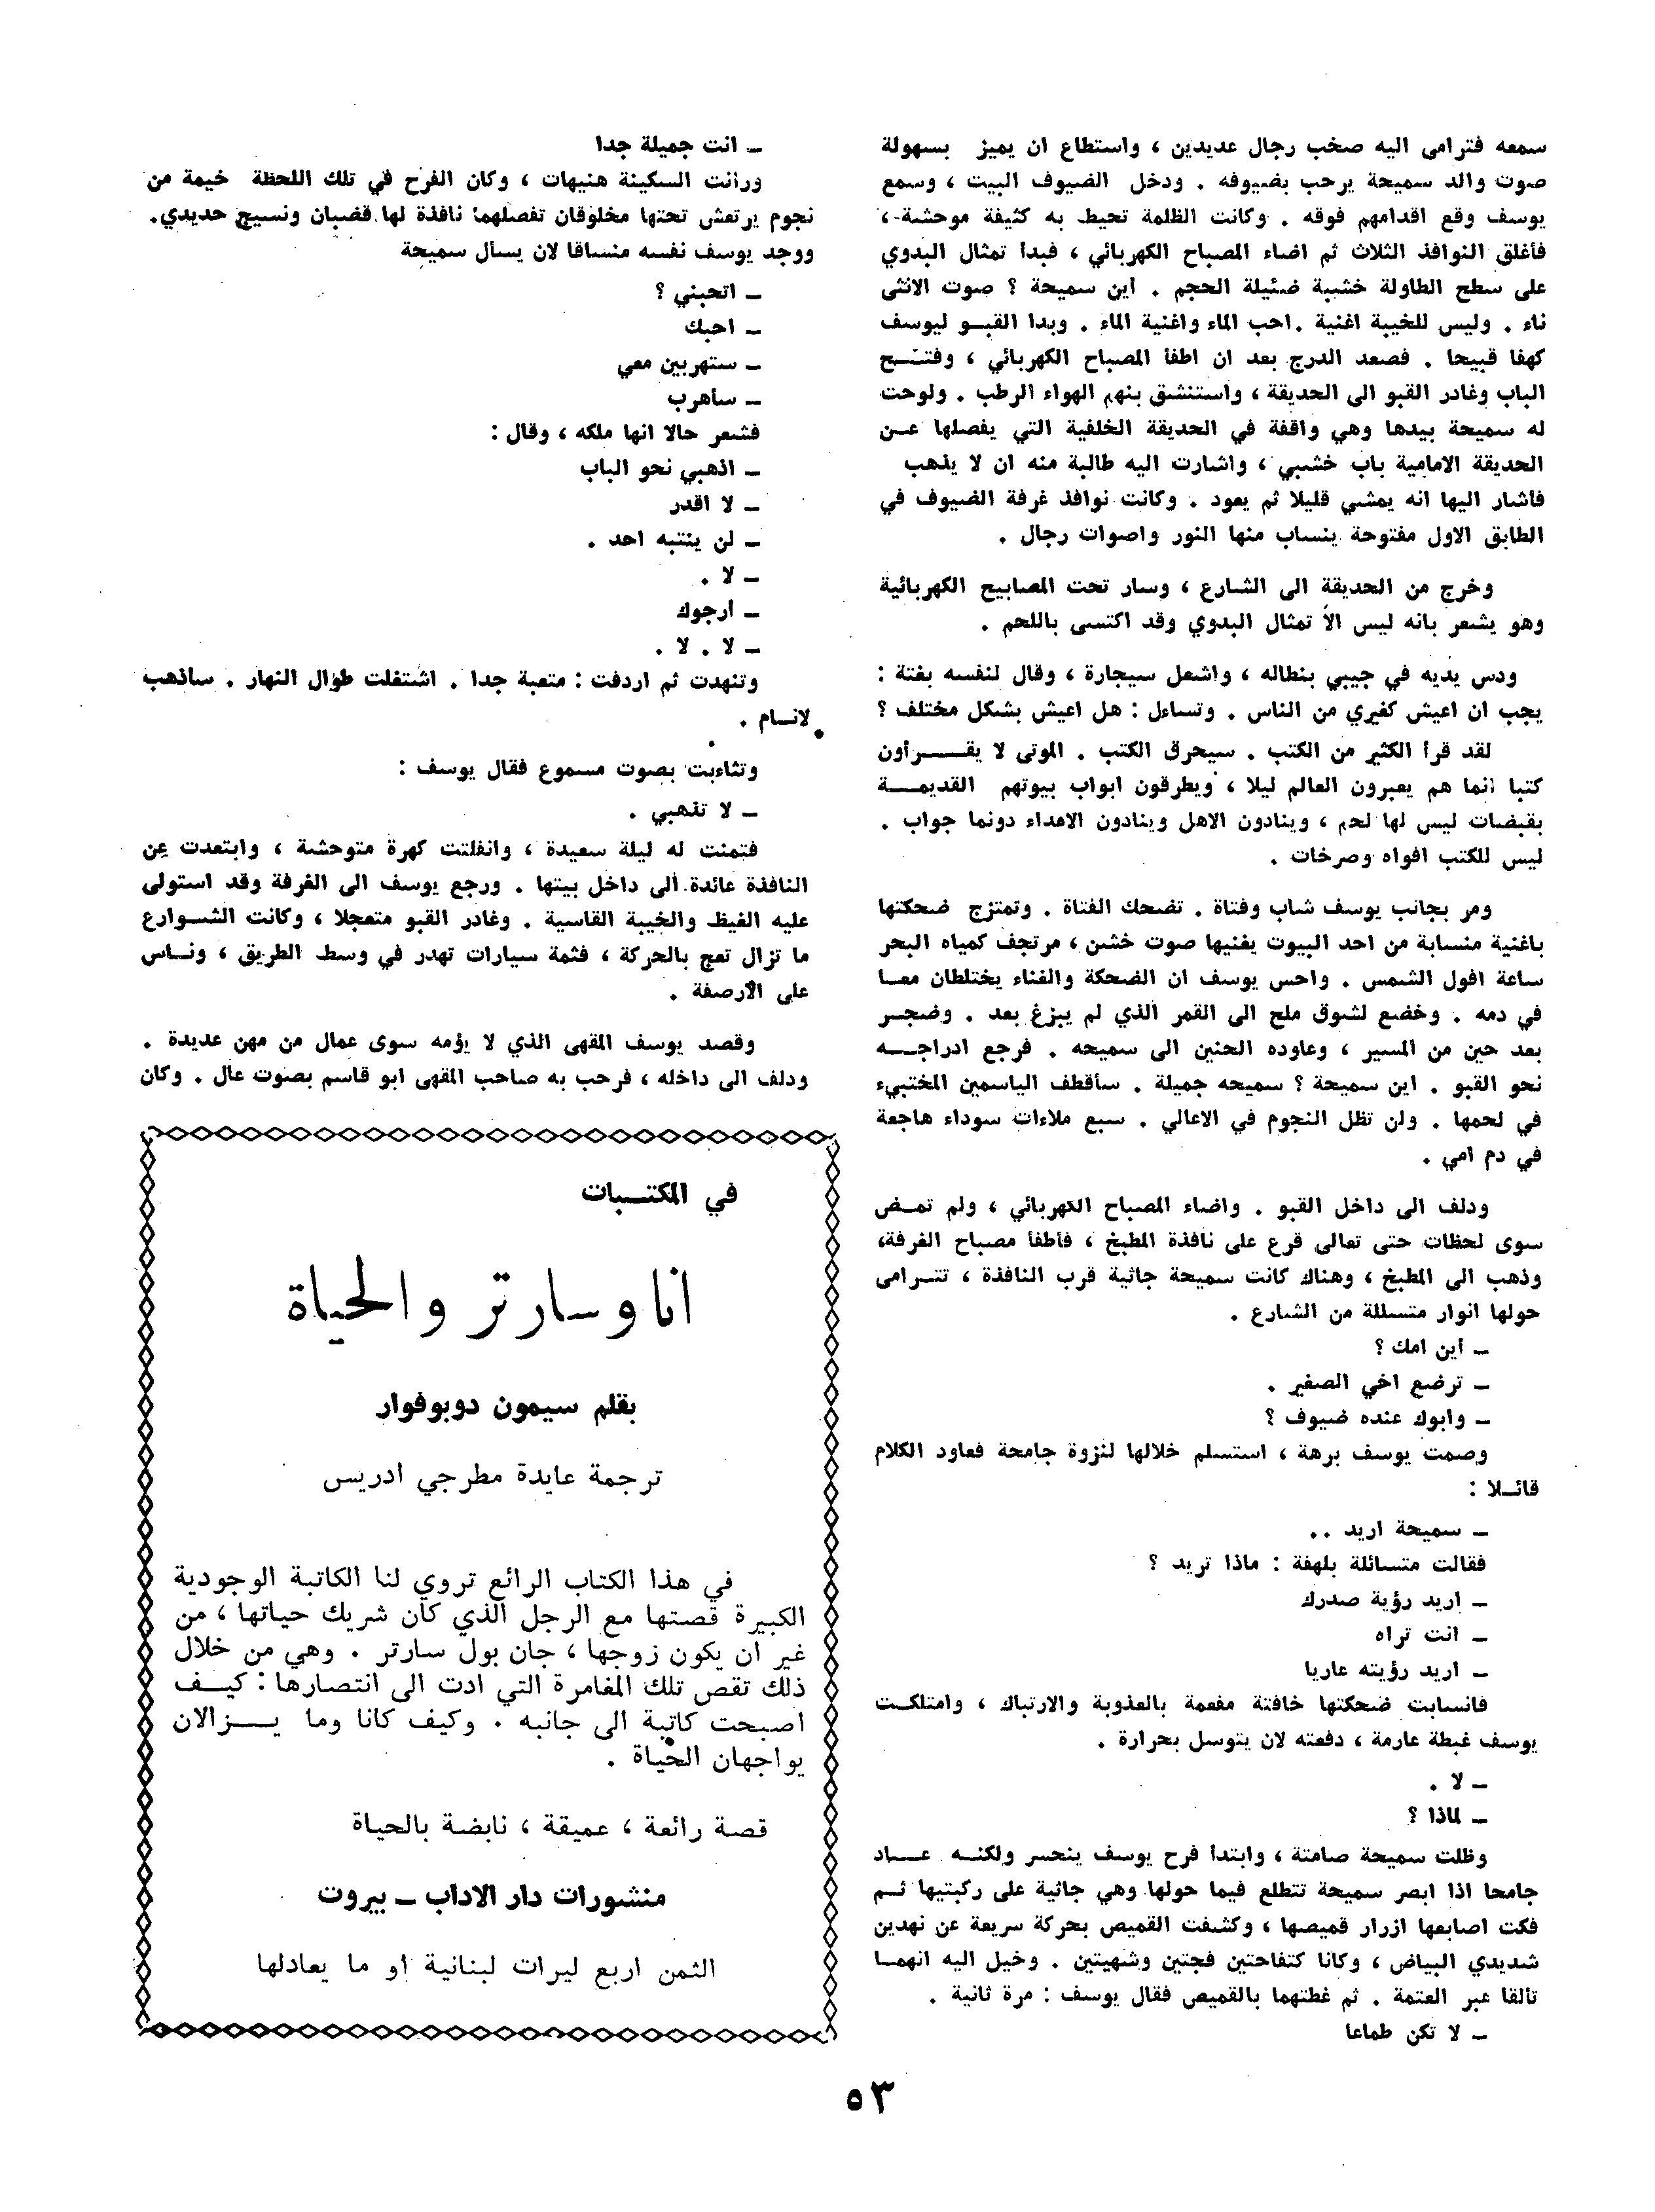 سمعه فترامى اليه صخب رجال عديدين ، واستطاع ان يميز بسهولة
صوت والد سميحة يرحب بضيوفه . ودخل الضيوف البيت ، وسمع
يوسف وقع اقدامهم فوقه . وكانت الظلمة تحيط به كثيفة موحشة ،
فأغلق النوافذ الثلاث ثم اضاء المصباح الكهربائي ، فبدأ تمثال البدوي
على سطح الطاولة خشبة ضئيلة الحجم . أين سميحة ؟ صوت الانثى
ناء . وليس للخيبة اغنية . احب الماء واغنية الماء . وبدا القبـو ليوسف
كهفا قبيحا . فصعد الدرج بعد ان اطفأ المصباح الكهربائي ، وفتـــح
الباب وغادر القبو الى الحديقة ، واستنشق بنهم الهواء الرطب . ولوحت
له سميحة بيدها وهي واقفة في الحديقة الخلفية التي يفصلها عـن
الحديقة الامامية باب خشبي ، واشارت اليه طالبة منه ان لا يذهب
فأشار اليها انه يمشي قليلا ثم يعود . وكانت نوافذ غرفة الضيوف في
الطابق الاول مفتوحة ينساب منها النور واصوات رجال .
وخرج من الحديقة الى الشارع ، وسار تحت المصابيح الكهربائية
وهو يشعر بانه ليس الا تمثال البدوي وقد اكتسى باللحم .
ودس يديه في جيبي بنطاله ، واشعل سيجارة ، وقال لنفسه بغتة :
يجب ان اعيش كغيري من الناس . وتساءل : هل اعيش بشكل مختلف ؟
لقد قرأ الكثير من الكتب . سيحرق الكتب . الموتى لا يقـــرأون
كتبا انما هم يعبرون العالم ليلا ، ويطرقون ابواب بيوتهم القديمـــة
بقبضات ليس لها لحم ، وينادون الاهل وينادون الاعداء دونما جواب .
ليس للكتب افواه وصرخات .
ومر بجانب يوسف شاب وفتاة . تضحك الفتاة . وتمتزج ضحكتها
باغنية منسابة من احد البيوت يغنيها صوت خشن ، مرتجف كمياه البحر
ساعة افول الشمس . واحس يوسف ان الضحكة والغناء يختلطان معـا
في دمه . وخضع لشوق ملح الى القمر الذي لم يبزغ بعد . وضجـر
بعد حين من المسير ، وعاوده الحنين الى سميحه . فرجع ادراجـــه
نحو القبو . اين سميحة ؟ سميحه جميلة . سأقطف الياسمين المختبىء
في لحمها . ولن تظل النجوم في الاعالي . سبع ملاءات سوداء هاجعة
في دم امي .
ودلف الى داخل القبو . واضاء المصباح الكهربائي ، ولم تمـض
سوى لحظات حتى تعالى قرع على نافذة المطبخ ، فأطفأ مصباح الغرفة،
وذهب الى المطبخ ، وهناك كانت سميحة جاثية قرب النافذة ، تتـرامى
حولها انوار متسللة من الشارع .
ـ أين امك ؟
ـ ترضع اخي الصغير .
ـ وابوك عنده ضيوف ؟
وصمت يوسف برهة ، استسلم خلالها لنزوة جامحة فعاود الكلام
قائـلا :
ـ سميحة اريد . .
فقالت متسائلة بلهفة : ماذا تريد ؟
ـ اريد رؤية صدرك
ـ انت تراه
ـ اريد رؤيته عاريا
فانسابت ضحكتها خافتة مفعمة بالعذوبة والارتباك ، وامتلكـت
يوسف غبطة عارمة ، دفعته لان يتوسل بحرارة .
ـ لا .
ـ لماذا ؟
وظلت سميحة صامتة ، وابتدأ فرح يوسف ينحسر ولكنـه عـاد
جامحا اذا ابصر سميحة تتطلع فيما حولها وهي جاثية على ركبتيها ثـم
فكت اصابعها ازرار قميصها ، وكشفت القميص بحركة سريعة عن نهدين
شديدي البياض ، وكانا كتفاحتين فجتين وشهيتين . وخيل اليه انهمـا
تألقا عبر العتمة . ثم غطتهما بالقميص فقال يوسف : مرة ثانية .
ـ لا تكن طماعا
ـ انت جميلة جدا
ورانت السكينة هنيهات ، وكان الفرح في تلك اللحظة خيمة من
نجوم يرتعش تحتها مخلوقان تفصلهما نافذة لها قضبان ونسيج حديدي.
ووجد يوسف نفسه منساقا لان يسأل سميحة
ـ اتحبني ؟
ـ احبك
ـ ستهربين معي
ـ سأهرب
فشعر حالا انها ملكه ، وقال :
ـ اذهبي نحو الباب
ـ لا اقدر
ـ لن ينتبه احد .
ـ لا .
ـ ارجوك
ـ لا . لا .
وتنهدت ثم اردفت : متعبة جدا . اشتغلت طوال النهار . سأذهب
لانـام .
وتثاءبت بصوت مسموع فقال يوسف :
ـ لا تذهبي .
فتمنت له ليلة سعيدة ، وانفلتت كهرة متوحشة ، وابتعدت عن
النافذة عائدة الى داخل بيتها . ورجع يوسف الى الغرفة وقد استولى
عليه الغيظ والخيبة القاسية . وغادر القبو متعجلا ، وكانت الشـوارع
ما تزال تعج بالحركة ، فثمة سيارات تهدر في وسط الطريق ، ونـاس
على الأرصفة .
وقصد يوسف المقهى الذي لا يؤمه سوى عمال من مهن عديدة .
ودلف الى داخله ، فرحب به صاحب المقهى ابو قاسم بصوت عال . وكان
في المكتـبات
انا وسارتر والحياة
بقلم سيمون دوبوفوار
ترجمة عايدة مطرجي ادريس
في هذا الكتاب الرائع تروي لنا الكاتبة الوجودية
الكبيرة قصتها مع الرجل الذي كان شريك حياتها ، من
غير ان يكون زوجها ، جان بول سارتر . وهي من خلال
ذلك تقص تلك المغامرة التي ادت الى انتصارها : كيـف
اصبحت كاتبة الى جانبه . وكيف كانا وما يـــزالان
يواجهان الحياة .
قصة رائعة ، عميقة ، نابضة بالحياة
منشورات دار الاداب ـ بيروت
الثمن اربع ليرات لبنانية او ما يعادلها
٥٣